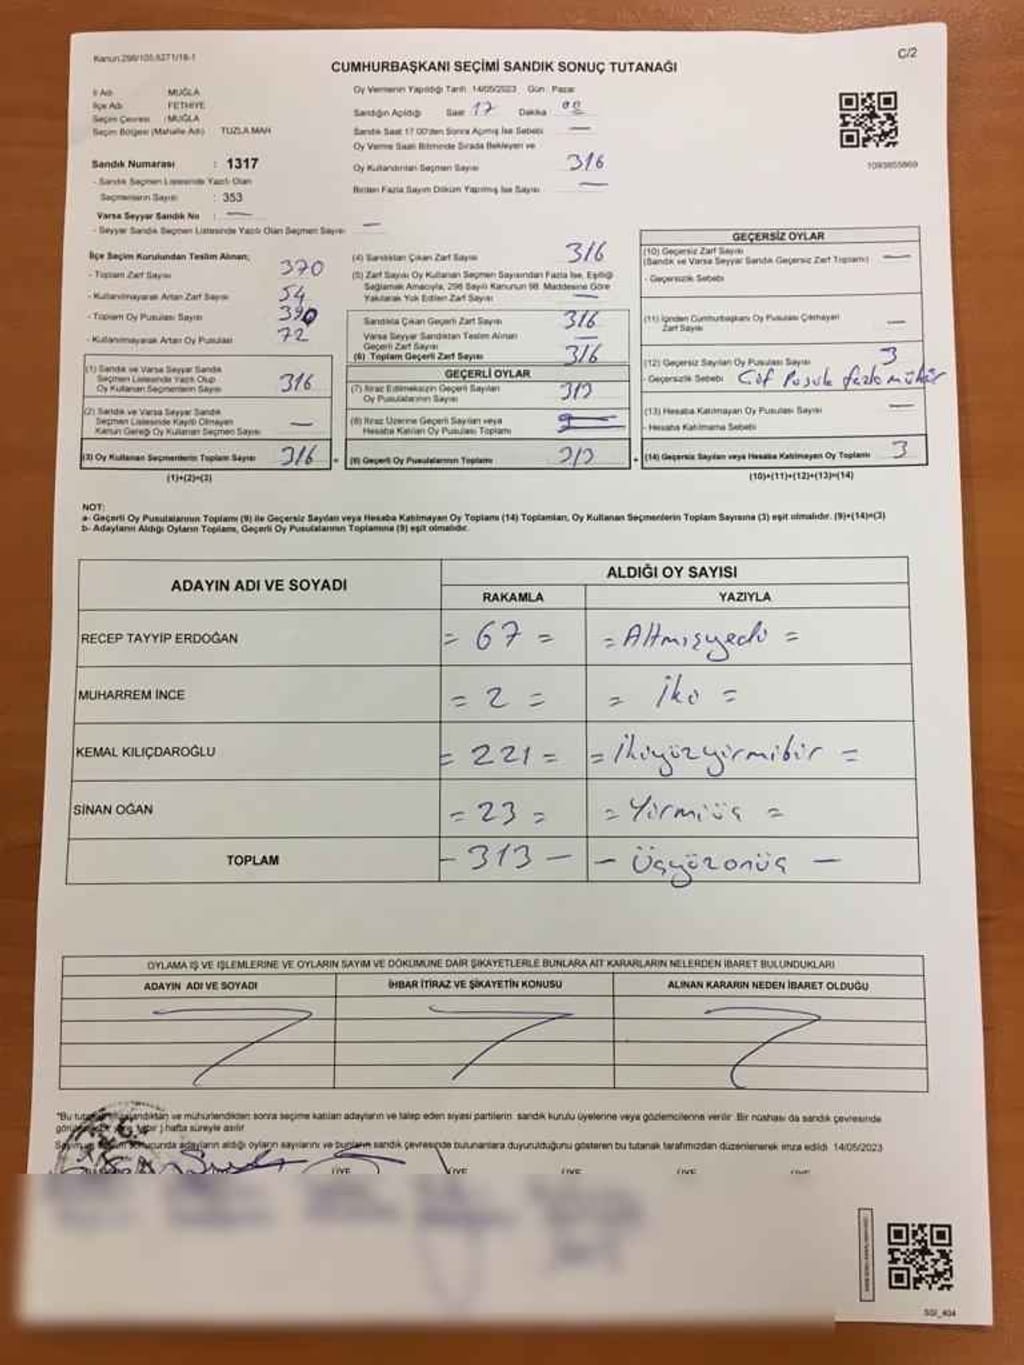 Kanun:298/105,6271/18-1
C/2
CUMHURBAŞKANI SEÇİMİ SANDIK SONUÇ TUTANAĞI
İl Adı : MUĞLA
İlçe Adı : FETHİYE
Seçim Çevresi : MUĞLA
Seçim Bölgesi (Mahalle Adı) : TUZLA MAH
Sandık Numarası : 1317
- Sandık Seçmen Listesinde Yazılı Olan
Seçmenlerin Sayısı : 353
Varsa Seyyar Sandık No : —
- Seyyar Sandık Seçmen Listesinde Yazılı Olan Seçmen Sayısı: —
Oy Vermenin Yapıldığı Tarih: 14/05/2023 Gün: Pazar
Sandığın Açıldığı Saat 17 Dakika 00
Sandık Saat 17.00'den Sonra Açılmış İse Sebebi —
Oy Verme Saati Bitiminde Sırada Bekleyen ve
Oy Kullandırılan Seçmen Sayısı 316
Birden Fazla Sayım Döküm Yapılmış İse Sayısı —
1093855869
İlçe Seçim Kurulundan Teslim Alınan;
- Toplam Zarf Sayısı 370
- Kullanılmayarak Artan Zarf Sayısı 54
- Toplam Oy Pusulası Sayısı
- Kullanılmayarak Artan Oy Pusulası 72
(1) Sandık ve Varsa Seyyar Sandık
Seçmen Listesinde Yazılı Olup
Oy Kullanan Seçmenlerin Sayısı 316
(2) Sandık ve Varsa Seyyar Sandık
Seçmen Listesinde Kayıtlı Olmayan
Kanun Gereği Oy Kullanan Seçmen Sayısı —
(3) Oy Kullanan Seçmenlerin Toplam Sayısı 316
(1)+(2)=(3)
(4) Sandıktan Çıkan Zarf Sayısı 316
(5) Zarf Sayısı Oy Kullanan Seçmen Sayısından Fazla İse, Eşitliği
Sağlamak Amacıyla, 298 Sayılı Kanunun 98. Maddesine Göre
Yakılarak Yok Edilen Zarf Sayısı —
Sandıkta Çıkan Geçerli Zarf Sayısı 316
Varsa Seyyar Sandıktan Teslim Alınan
Geçerli Zarf Sayısı —
(6) Toplam Geçerli Zarf Sayısı 316
GEÇERLİ OYLAR
(7) İtiraz Edilmeksizin Geçerli Sayılan
Oy Pusulalarının Sayısı 313
(8) İtiraz Üzerine Geçerli Sayılan veya
Hesaba Katılan Oy Pusulası Toplamı
(9) Geçerli Oy Pusulalarının Toplamı 313
GEÇERSİZ OYLAR
(10) Geçersiz Zarf Sayısı
(Sandık ve Varsa Seyyar Sandık Geçersiz Zarf Toplamı) —
- Geçersizlik Sebebi
(11) İçinden Cumhurbaşkanı Oy Pusulası Çıkmayan
Zarf Sayısı —
(12) Geçersiz Sayılan Oy Pusulası Sayısı 3
- Geçersizlik Sebebi Çöf Pusula fazla mühür
(13) Hesaba Katılmayan Oy Pusulası Sayısı —
- Hesaba Katılmama Sebebi
(14) Geçersiz Sayılan veya Hesaba Katılmayan Oy Toplamı 3
(10)+(11)+(12)+(13)=(14)
NOT:
a- Geçerli Oy Pusulalarının Toplamı (9) ile Geçersiz Sayılan veya Hesaba Katılmayan Oy Toplamı (14) Toplamları, Oy Kullanan Seçmenlerin Toplam Sayısına (3) eşit olmalıdır. (9)+(14)=(3)
b- Adayların Aldığı Oyların Toplamı, Geçerli Oy Pusulalarının Toplamına (9) eşit olmalıdır.
ADAYIN ADI VE SOYADI
ALDIĞI OY SAYISI
RAKAMLA YAZIYLA
RECEP TAYYİP ERDOĞAN = 67 = = Altmışyedi =
MUHARREM İNCE = 2 = = İki =
KEMAL KILIÇDAROĞLU = 221 = = İkiyüzyirmibir =
SİNAN OĞAN = 23 = = Yirmiüç =
TOPLAM - 313 - - Üçyüzonüç -
OYLAMA İŞ VE İŞLEMLERİNE VE OYLARIN SAYIM VE DÖKÜMÜNE DAİR ŞİKAYETLERLE BUNLARA AİT KARARLARIN NELERDEN İBARET BULUNDUKLARI
ADAYIN ADI VE SOYADI
İHBAR İTİRAZ VE ŞİKAYETİN KONUSU
ALINAN KARARIN NEDEN İBARET OLDUĞU
"Bu ve mühürlendikten sonra seçime katılan adayların ve talep eden siyasi partilerin sandık kurulu üyelerine veya gözlemcilerine verilir. Bir nüshası da sandık çevresinde
hafta süreyle asılır
adayların aldığı oyların sayılarını ve bunların sandık çevresinde bulunanlara duyurulduğunu gösteren bu tutanak tarafımızdan düzenlenerek imza edildi. 14/05/2023
ÜYE ÜYE ÜYE ÜYE ÜYE
SSİ_404